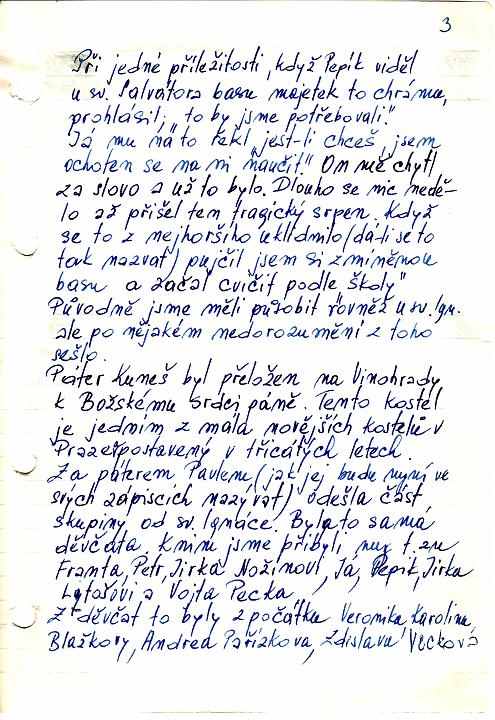 3
Při jedné příležitosti, když Pepík viděl
u sv. Salvátora basu majetek to chrámu,
prohlásil; "to by jsme potřebovali."
Já mu na to řekl "jest-li chceš, jsem
ochoten se na ni naučit." On mě chytl
za slovo a už to bylo. Dlouho se nic nedě-
lo až přišel ten tragický srpen. Když
se to z nejhoršího uklidnilo (dá-li se to
tak nazvat) pujčil jsem si zmíněnou
basu a začal cvičit podle školy"
Původně jsme měli působit rovněž u sv. Ign.
ale po nějakém nedorozumění z toho
sešlo.
Páter Kuneš byl přeložen na Vinohrady
k Božskému srdci páně. Tento kostel
je jedním z mála novějších kostelů v
Praze postavený v třicátých letech.
Za páterem Pavlem (jak jej bude nyní ve
svých zápiscích nazývat) odešla část
skupiny od sv. Ignáce. Byla to samá
děvčata. K nim jsme přibyli my t. zn
Franta, Petr, Jirka Nožinovi, Já, Pepík, Jirka
a Vojta Pecka.
Z děvčat to byly zpočátku Veronika Karolina
Blažkovy, Andrea Pařízkova, Zdislava Vacková